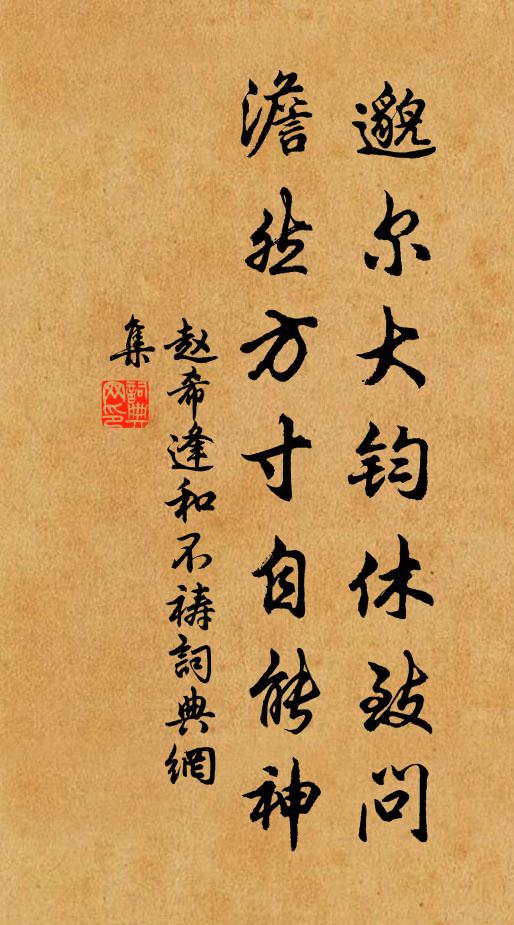 邈尔大钧休致问
澹然方寸自能神
赵希逢和不祷詞典網
集
詞典
网印